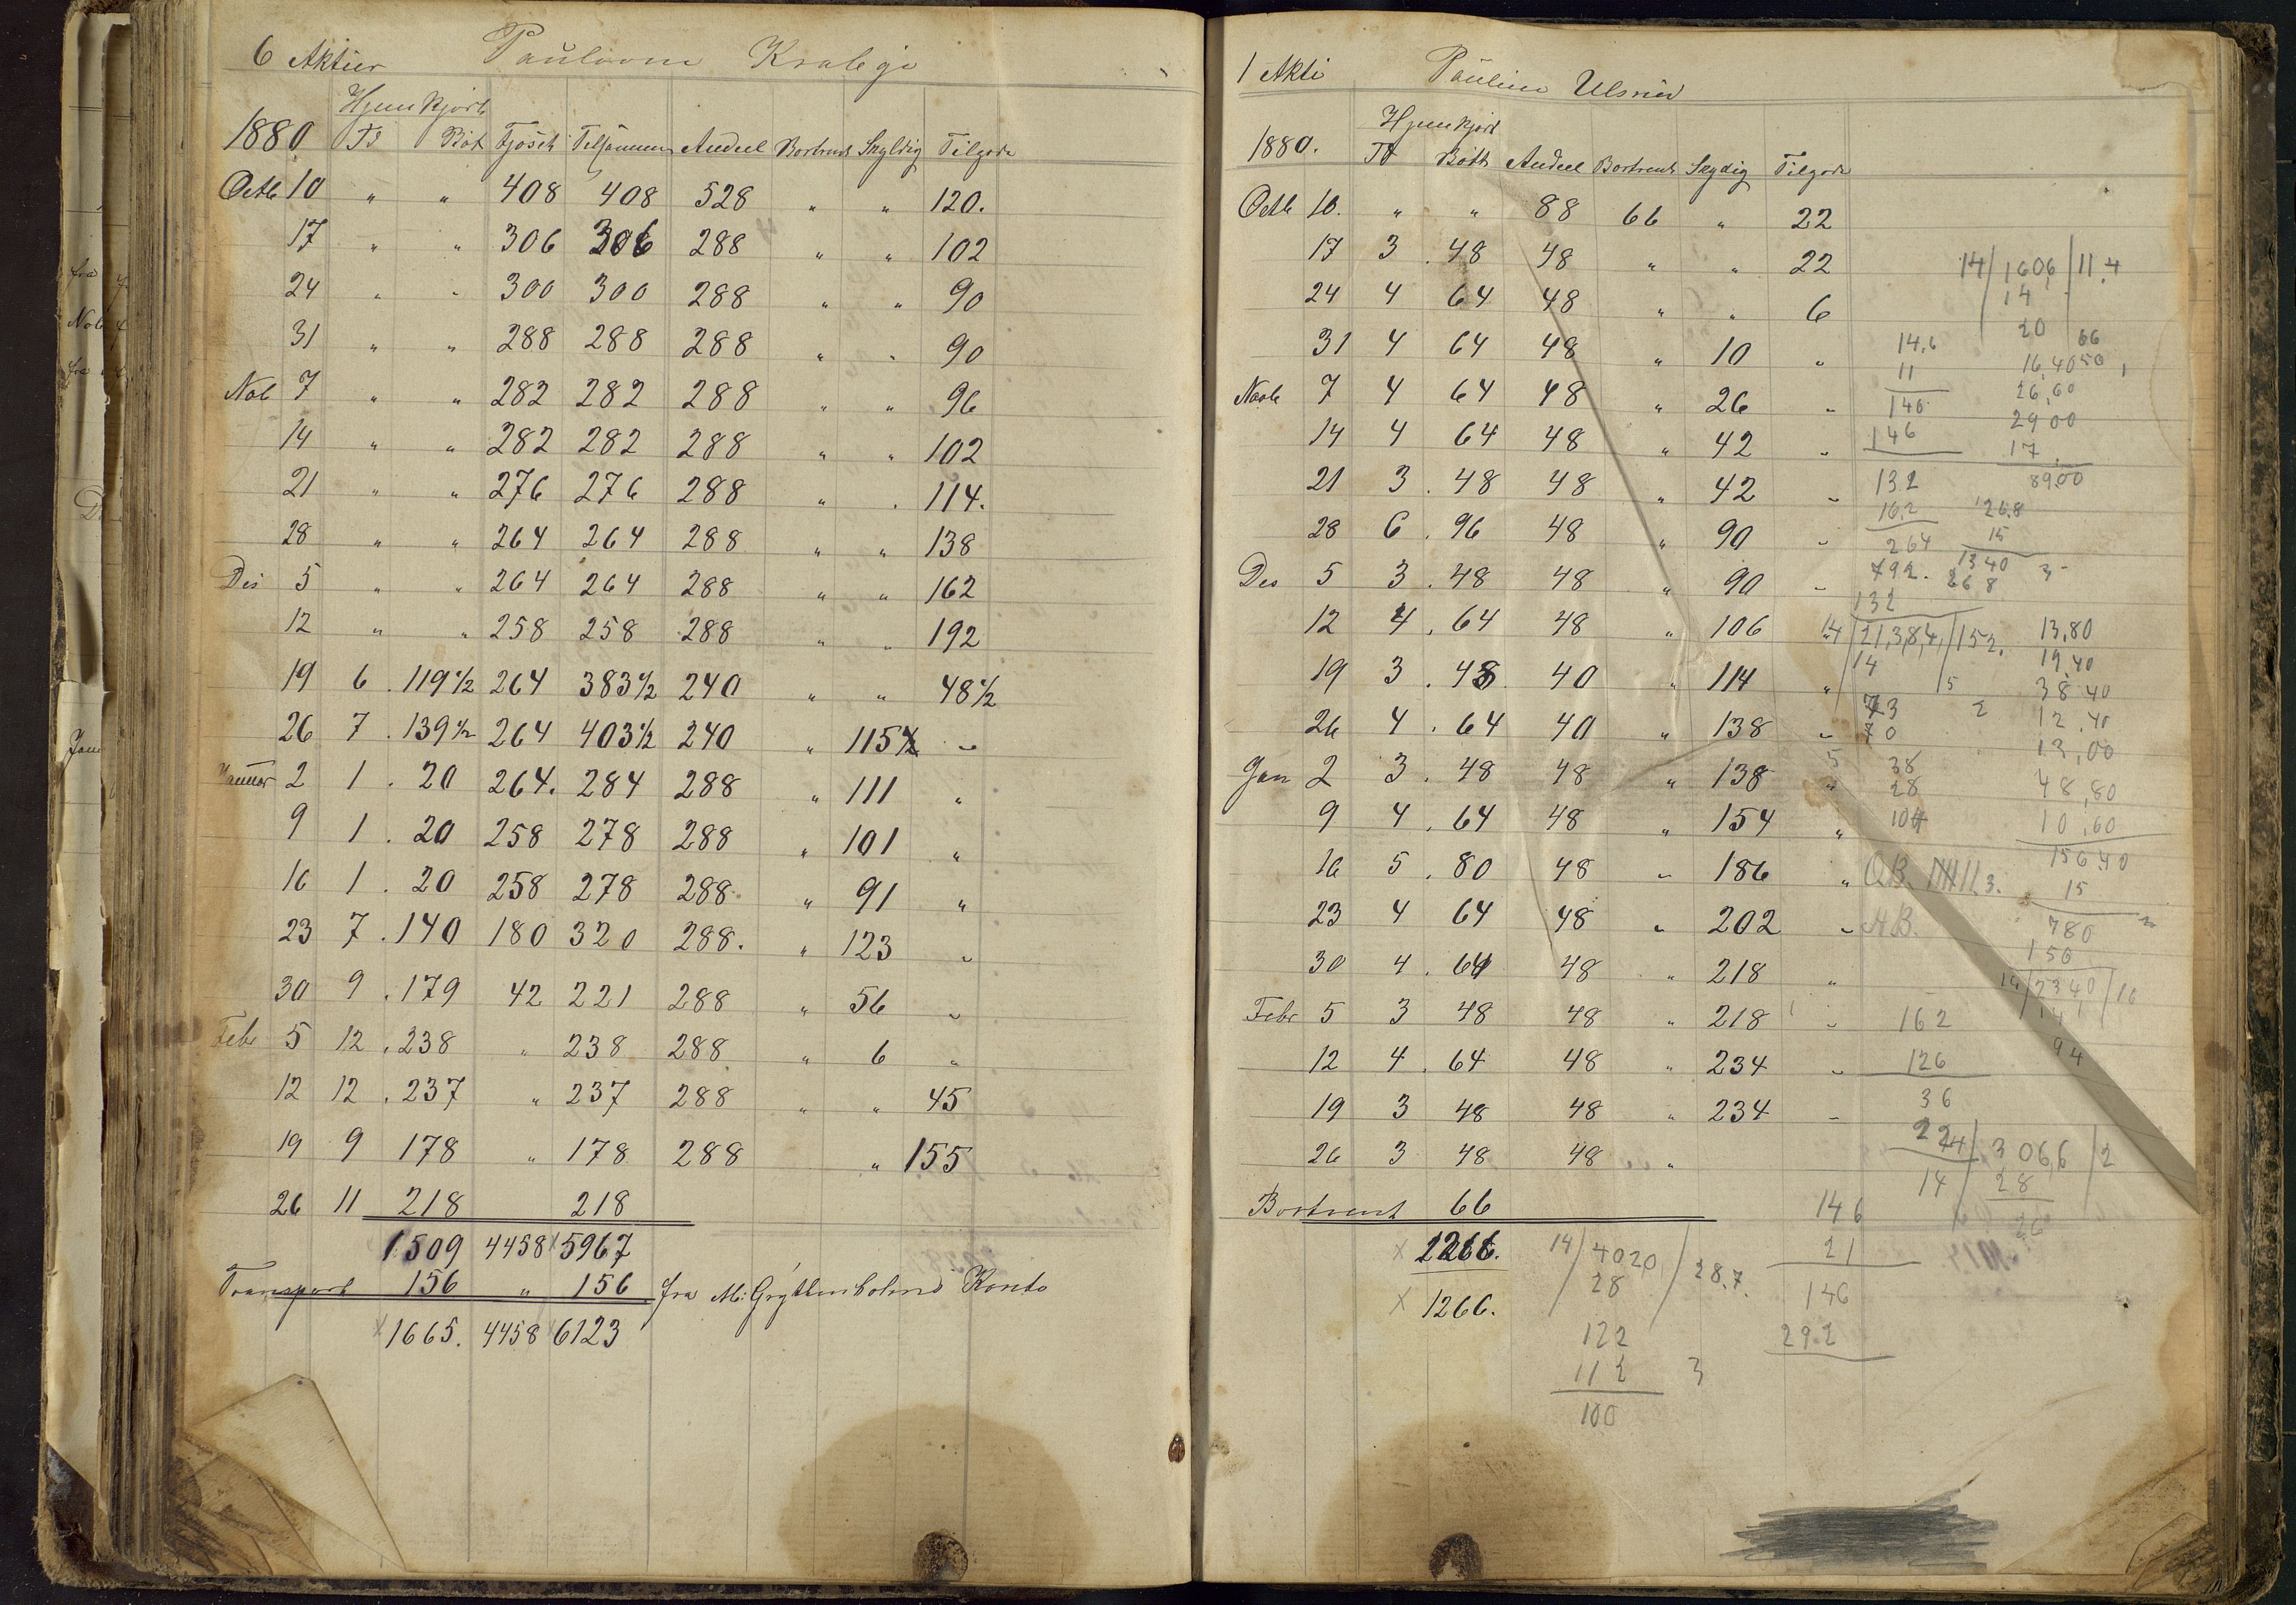 6 Aktier
Hjemkjørt
1880 Td Bøt Fjøsett Tilsammen Andeel Bortrent Skyldig Tilgode
Octb 10 " " 408 408 528 " " 120.
17 " " 306 306 288 " " 102
24 " " 300 300 288 " " 90
31 " " 288 288 288 " " 90
Nob 7 " " 282 282 288 " " 96
14 " " 282 282 288 " " 102
21 " " 276 276 288 " " 114.
28 " " 264 264 288 " " 138
Des 5 " " 264 264 288 " " 162
12 " " 258 258 288 " " 192
19 6 . 119 1/2 264 383 1/2 240 " " 48 1/2
26 7 . 139 1/2 264 403 1/2 240 " 115 "
Januar 2 1 . 20 264. 284 288 " 111 "
9 1 . 20 258 278 288 " 101 "
16 1 . 20 258 278 288 " 91 "
23 7 . 140 180 320 288. " 123 "
30 9 . 179 42 221 288 " 56 "
Febr 5 12 . 238 " 238 288 " 6 "
12 12 . 237 " 237 288 " " 45
19 9 178 " 178 288 " 155
26 11 218 218
1509 4458 x 5967
Transport 156 " 156 fra M: Grythenholms Konto
x 1665. 4458 x 6123
1 Akti Pauline Ulsnes
Hjemkjørt
1880. Td Bøtt Andeel Bortrent Skydig Tilgode
Octb 10. " " 88 66 " 22
17 3 . 48 48 " " 22
24 4 64 48 " " 6
31 4 64 48 " 10 "
Novb 7 4 64 48 " 26 "
14 4 64 48 " 42 "
21 3 . 48 48 " 42 "
28 6 . 96 48 " 90 "
Des 5 3 . 48 48 " 90 "
12 4 . 64 48 " 106 "
19 3 . 48 40 " 114 "
26 4 . 64 40 " 138 "
Jan 2 3 . 48 48 " 138 "
9 4 . 64 48 " 154 "
16 5 . 80 48 " 186 "
23 4 64 48 " 202 "
30 4 . 64 48 " 218 "
Febr 5 3 48 48 " 218 "
12 4 . 64 48 " 234 "
19 3 48 48 " 234 "
26 3 48 48 "
Bortrent 66
x 1266.
x 1266.
14/1606/11.4
14
20
14,6
11
146
146
66
26,60
2900
17
8900
132
16,2
264
792.
132
26,8
15
1340
268
14/21,3,8,4/152.
14
73
70
38
28
104
13,80
19,40
38 40
12,40
13,00
48,80
10,60
156,40
15
780
156
14/2340/16
14
94
AB.
162
126
36
3066/2
14
28
26
146
21
146
292
14/4020/28.7.
28
122
112 3
100